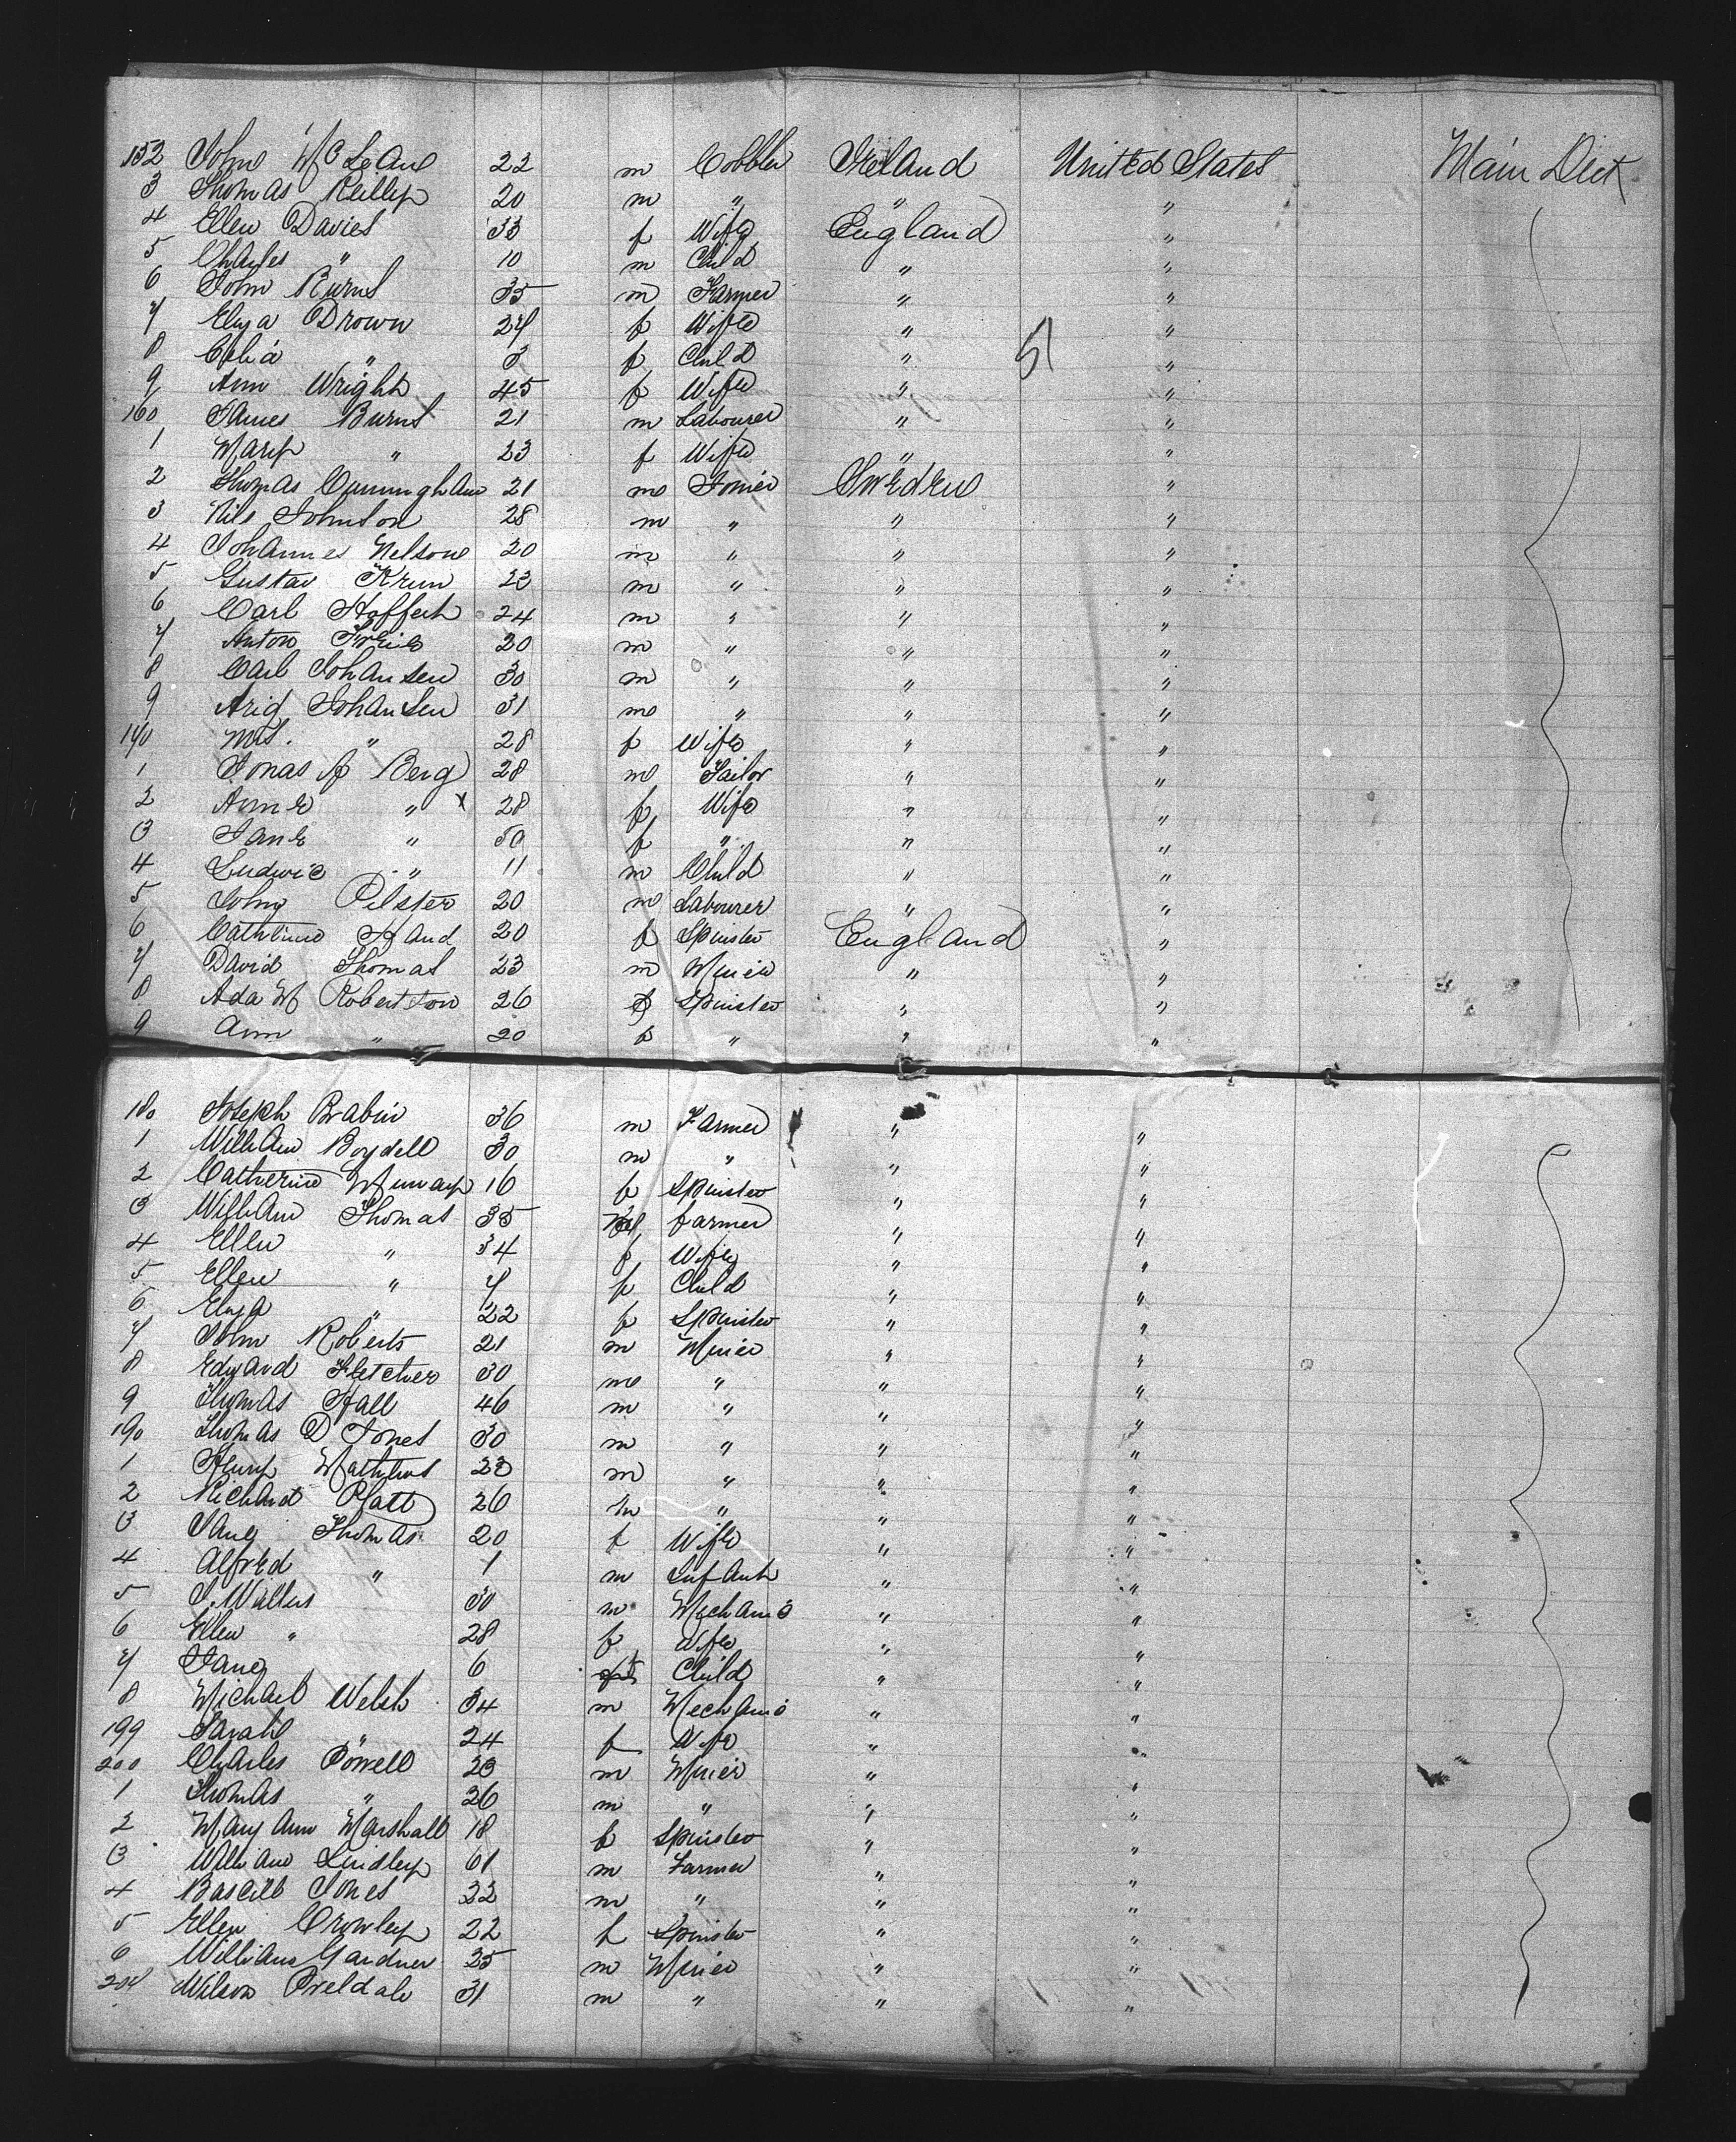 152 John McLeane 22 m Cobbler Ireland United States Main Deck
3 Thomas Reilly 20 m " " "
4 Ellen Davies 33 f Wife England "
5 Charles " 10 m Child " "
6 John Burns 35 m Farmer " "
7 Eliza Brown 27 f Wife " "
8 Celia " 3 f Child " 51 "
9 Ann Wright 45 f Wife " "
160 James Burns 21 m Labourer " "
1 Mary " 23 f Wife " "
2 Thomas Cunningham 21 m Joiner Sweden "
3 Nils Johnson 28 m " " "
4 Johannes Nelson 20 m " " "
5 Gustav Krum 23 m " " "
6 Carl 24 m " " "
7 Anton 20 m " " "
8 Carl Johansen 30 m " " "
9 Johansen 31 m " " "
170 Mrs. " 28 f Wife " "
1 Jonas Berg 28 m Tailor " "
2 Anne " x 28 f Wife " "
3 Jane " 50 f " " "
4 Ludwic " 11 m Child " "
5 John Pilster 20 m Labourer " "
6 Catherine Hand 20 f Spinster England "
7 David Thomas 23 m Miner " "
8 Ada M Robertson 26 f Spinster " "
9 Ann " 20 f " " "
180 Joseph Brabin 36 m Farmer " "
1 William Boydell 30 m " " "
2 Catherine 16 f Spinster " "
3 William Thomas 35 m farmer " "
4 Ellen " 34 f Wife " "
5 Ellen " 7 f Child " "
6 Eliza " 22 f Spinster " "
7 John Roberts 21 m Miner " "
8 Edward Fletcher 30 m " " "
9 Thomas Hall 46 m " " "
190 Thomas D Jones 30 m " " "
1 Henry Mathews 23 m " " "
2 Richard Platt 26 m " " "
3 Jane Thomas 20 f Wife " "
4 Alfred " 1 m Infant " "
5 J. Walters 30 m Mechanic " "
6 Ellen " 28 f Wife " "
7 Jane 6 f Child " "
8 Michael Welsh 34 m Mechanic " "
199 Sarah " 24 f Wife " "
200 Charles Powell 23 m Miner " "
1 Thomas " 26 m " " "
2 Mary Ann Marshall 18 f Spinster " "
3 William Lindley 61 m Farmer " "
4 Bascill Jones 22 m " " "
5 Ellen Crowley 22 f Spinster " "
6 William Gardner 25 m Miner " "
207 Wilson 31 m " " "